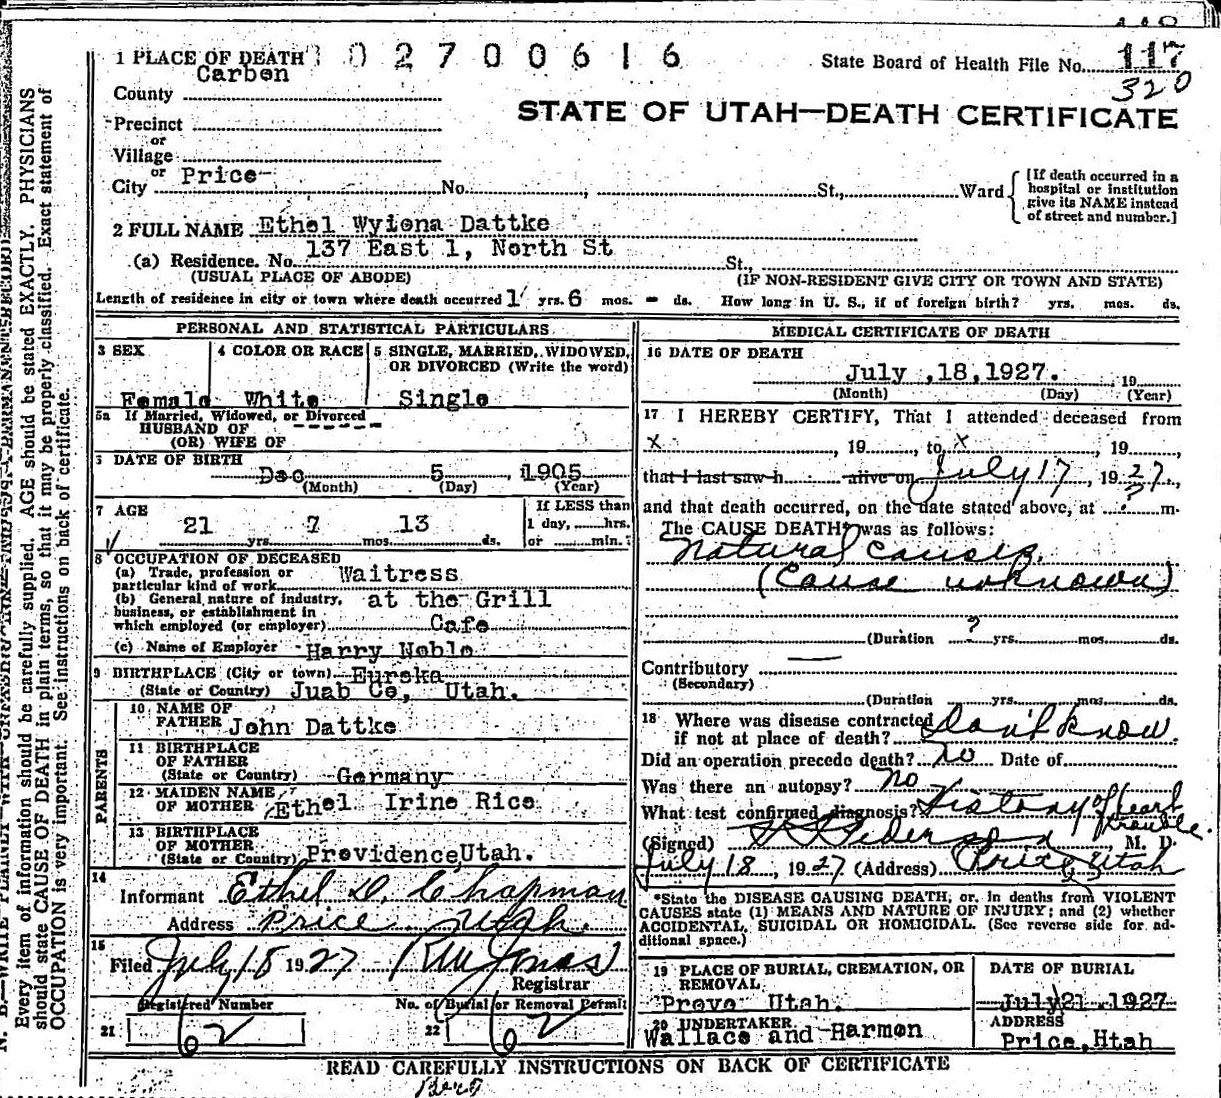 1 PLACE OF DEATH 0 2 7 0 0 6 1 6
State Board of Health File No. 117
320
Carbon
County
STATE OF UTAH—DEATH CERTIFICATE
Precinct
or
Village
or
City Price No. St., Ward
[If death occurred in a
hospital or institution
give its NAME instead
of street and number.]
2 FULL NAME Ethel Wyiona Dattke
(a) Residence. No. 137 East 1, North St St.,
(USUAL PLACE OF ABODE) (IF NON-RESIDENT GIVE CITY OR TOWN AND STATE)
Length of residence in city or town where death occurred 1 yrs. 6 mos. - ds. How long in U. S., if of foreign birth? yrs. mos. ds.
PERSONAL AND STATISTICAL PARTICULARS
3 SEX
Female
4 COLOR OR RACE
White
5 SINGLE, MARRIED, WIDOWED,
OR DIVORCED (Write the word)
Single
5a If Married, Widowed, or Divorced
HUSBAND OF
(OR) WIFE OF
DATE OF BIRTH
Dec 5 1905
(Month) (Day) (Year)
7 AGE
21 yrs. 7 mos. 13 ds.
If LESS than
1 day, hrs.
or min.?
8 OCCUPATION OF DECEASED
(a) Trade, profession or
particular kind of work Waitress
(b) General nature of industry,
business, or establishment in
which employed (or employer) at the Grill
Cafe
(c) Name of Employer Harry Noble
9 BIRTHPLACE (City or town) Eureka
(State or Country) Juab Co, Utah.
PARENTS
10 NAME OF
FATHER John Dattke
11 BIRTHPLACE
OF FATHER
(State or Country) Germany
12 MAIDEN NAME
OF MOTHER Ethel Irine Rice
13 BIRTHPLACE
OF MOTHER
(State or Country) Providence, Utah.
14
Informant Ethel D. Chapman
Address Price Utah.
15
Filed July 18 1927 Jones
Registrar
Registered Number
21 62
No. of Burial or Removal Permit
22 62
MEDICAL CERTIFICATE OF DEATH
16 DATE OF DEATH
July ,18,1927. 19
(Month) (Day) (Year)
17 I HEREBY CERTIFY, That I attended deceased from
x , 19 , to x , 19 ,
that I last saw h alive on July 17 , 19 27.,
and that death occurred, on the date stated above, at ? m.
The CAUSE DEATH* was as follows:
Natural causes.
(Cause unknown)
(Duration ? yrs. mos. ds.
Contributory
(Secondary)
(Duration yrs. mos. ds.
18 Where was disease contracted
if not at place of death? Don't know.
Did an operation precede death? no Date of
Was there an autopsy? no
What test confirmed diagnosis? History of heart
trouble.
(Signed) M. D.
July 18 , 1927 (Address) Price, Utah
*State the DISEASE CAUSING DEATH; or, in deaths from VIOLENT
CAUSES state (1) MEANS AND NATURE OF INJURY; and (2) whether
ACCIDENTAL, SUICIDAL OR HOMICIDAL. (See reverse side for ad-
ditional space.)
19 PLACE OF BURIAL, CREMATION, OR
REMOVAL
Provo Utah.
DATE OF BURIAL
July 21 ,1927
20 UNDERTAKER
Wallace and Harmon
ADDRESS
Price, Htah
READ CAREFULLY INSTRUCTIONS ON BACK OF CERTIFICATE
Every item of information should be carefully supplied. AGE should be stated EXACTLY. PHYSICIANS
should state CAUSE OF DEATH in plain terms, so that it may be properly classified. Exact statement of
OCCUPATION is very important. See instructions on back of certificate.